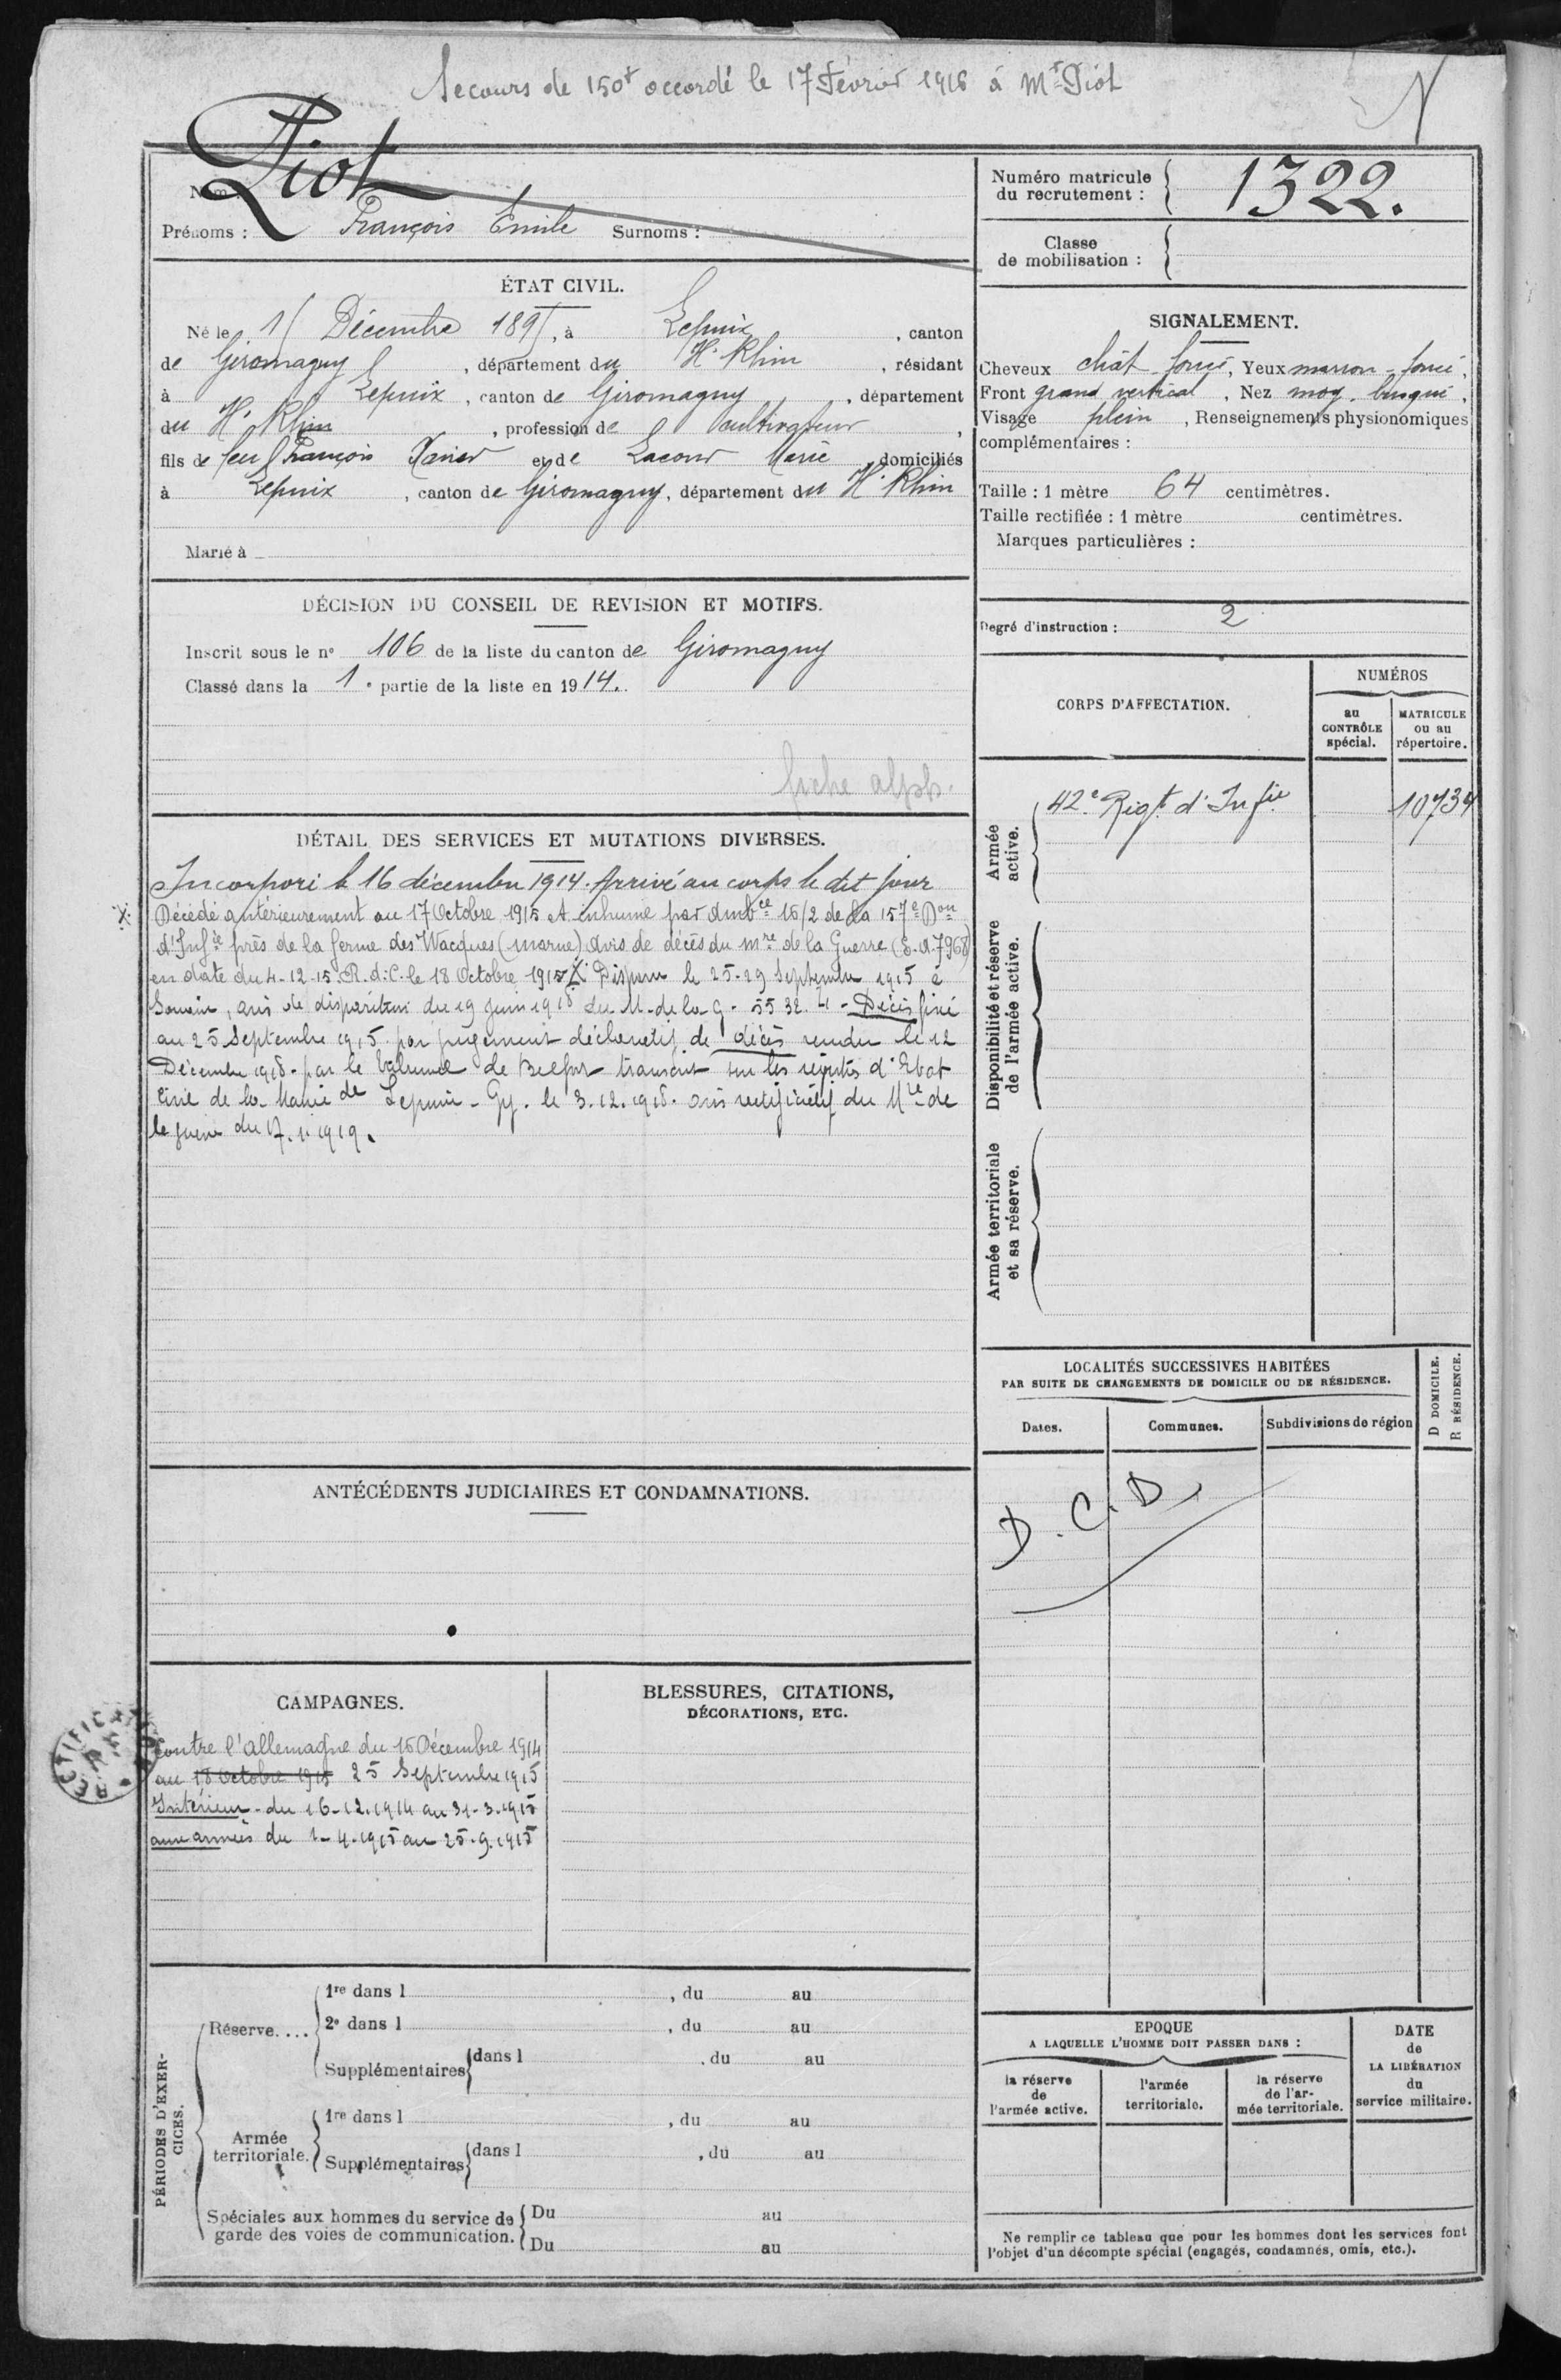 Secours de 150f accordé le 17 Février 1916 à Mr Piot
Nom : Piot
Prénoms : François Emile Surnoms :
Numéro matricule du recrutement : 1322.
Classe de mobilisation :
ÉTAT CIVIL.
Né le 1 Décembre 189 , à Lepuix , canton
de Giromagny , département du Ht Rhin , résidant
à Lepuix , canton de Giromagny , département
du Ht Rhin , profession de Cultivateur ,
fils de feu François Xavier et de Lacour Marie domiciliés
à Lepuix , canton de Giromagny, département du Ht Rhin
Marié à
SIGNALEMENT.
Cheveux chât foncé, Yeux marron-foncé,
Front grand vertical , Nez moy. busqué,
Visage plein , Renseignements physionomiques
complémentaires :
Taille : 1 mètre 64 centimètres.
Taille rectifiée : 1 mètre centimètres.
Marques particulières :
Degré d'instruction : 2
DÉCISION DU CONSEIL DE REVISION ET MOTIFS.
Inscrit sous le n° 106 de la liste du canton de Giromagny
Classé dans la 1e partie de la liste en 1914.
fiche alph.
DÉTAIL DES SERVICES ET MUTATIONS DIVERSES.
Incorporé le 16 décembre 1914. Arrivé au corps le dit jour
Décédé antérieurement au 17 Octobre 1915 et inhumé par Ambce 15/2 de la 157e Don
d'Infie près de la ferme des Wacques (Marne) Avis de décès du Mre de la Guerre (E.A.7968)
en date du 4-12-15. R.d.C. le 18 Octobre 1915 X Disparu le 25-29 Septembre 1915 à
Souain, avis de disparition du 19 juin 1918 du M. de la G. 5532. - Décès fixé
au 25 Septembre 1915 par jugement déclaratif de décès rendu le 12
Décembre 1918 - par le Tribunal de Belfort transcrit sur les registres d'Etat
Civil de la Mairie de Lepuix-Gy. le 3.12.1918. avis rectificatif du Mre de
la guerre du 17.1.1919.
CORPS D'AFFECTATION.
NUMÉROS
au CONTRÔLE spécial.
MATRICULE ou au répertoire.
Armée active.
42e Régt d'Infie 10734
Disponibilité et réserve de l'armée active.
Armée territoriale et sa réserve.
LOCALITÉS SUCCESSIVES HABITÉES
PAR SUITE DE CHANGEMENTS DE DOMICILE OU DE RÉSIDENCE.
D DOMICILE.
R RÉSIDENCE.
Dates. Communes. Subdivisions de région
D.C.D.
ANTÉCÉDENTS JUDICIAIRES ET CONDAMNATIONS.
CAMPAGNES.
Contre l'allemagne du 16 Décembre 1914
au 18 Octobre 1915 25 Septembre 1915
Intérieur - du 16-12.1914 au 31-3.1915
aux armées du 1-4.1915 au 25.9.1915
BLESSURES, CITATIONS,
DÉCORATIONS, ETC.
PÉRIODES D'EXERCICES.
Réserve....
1re dans l , du au
2e dans l , du au
Supplémentaires dans l , du au
Armée territoriale.
1re dans l , du au
Supplémentaires dans l , du au
Spéciales aux hommes du service de garde des voies de communication.
Du au
Du au
EPOQUE
A LAQUELLE L'HOMME DOIT PASSER DANS :
la réserve de l'armée active.
l'armée territoriale.
la réserve de l'armée territoriale.
DATE de LA LIBÉRATION du service militaire.
Ne remplir ce tableau que pour les hommes dont les services font
l'objet d'un décompte spécial (engagés, condamnés, omis, etc.).